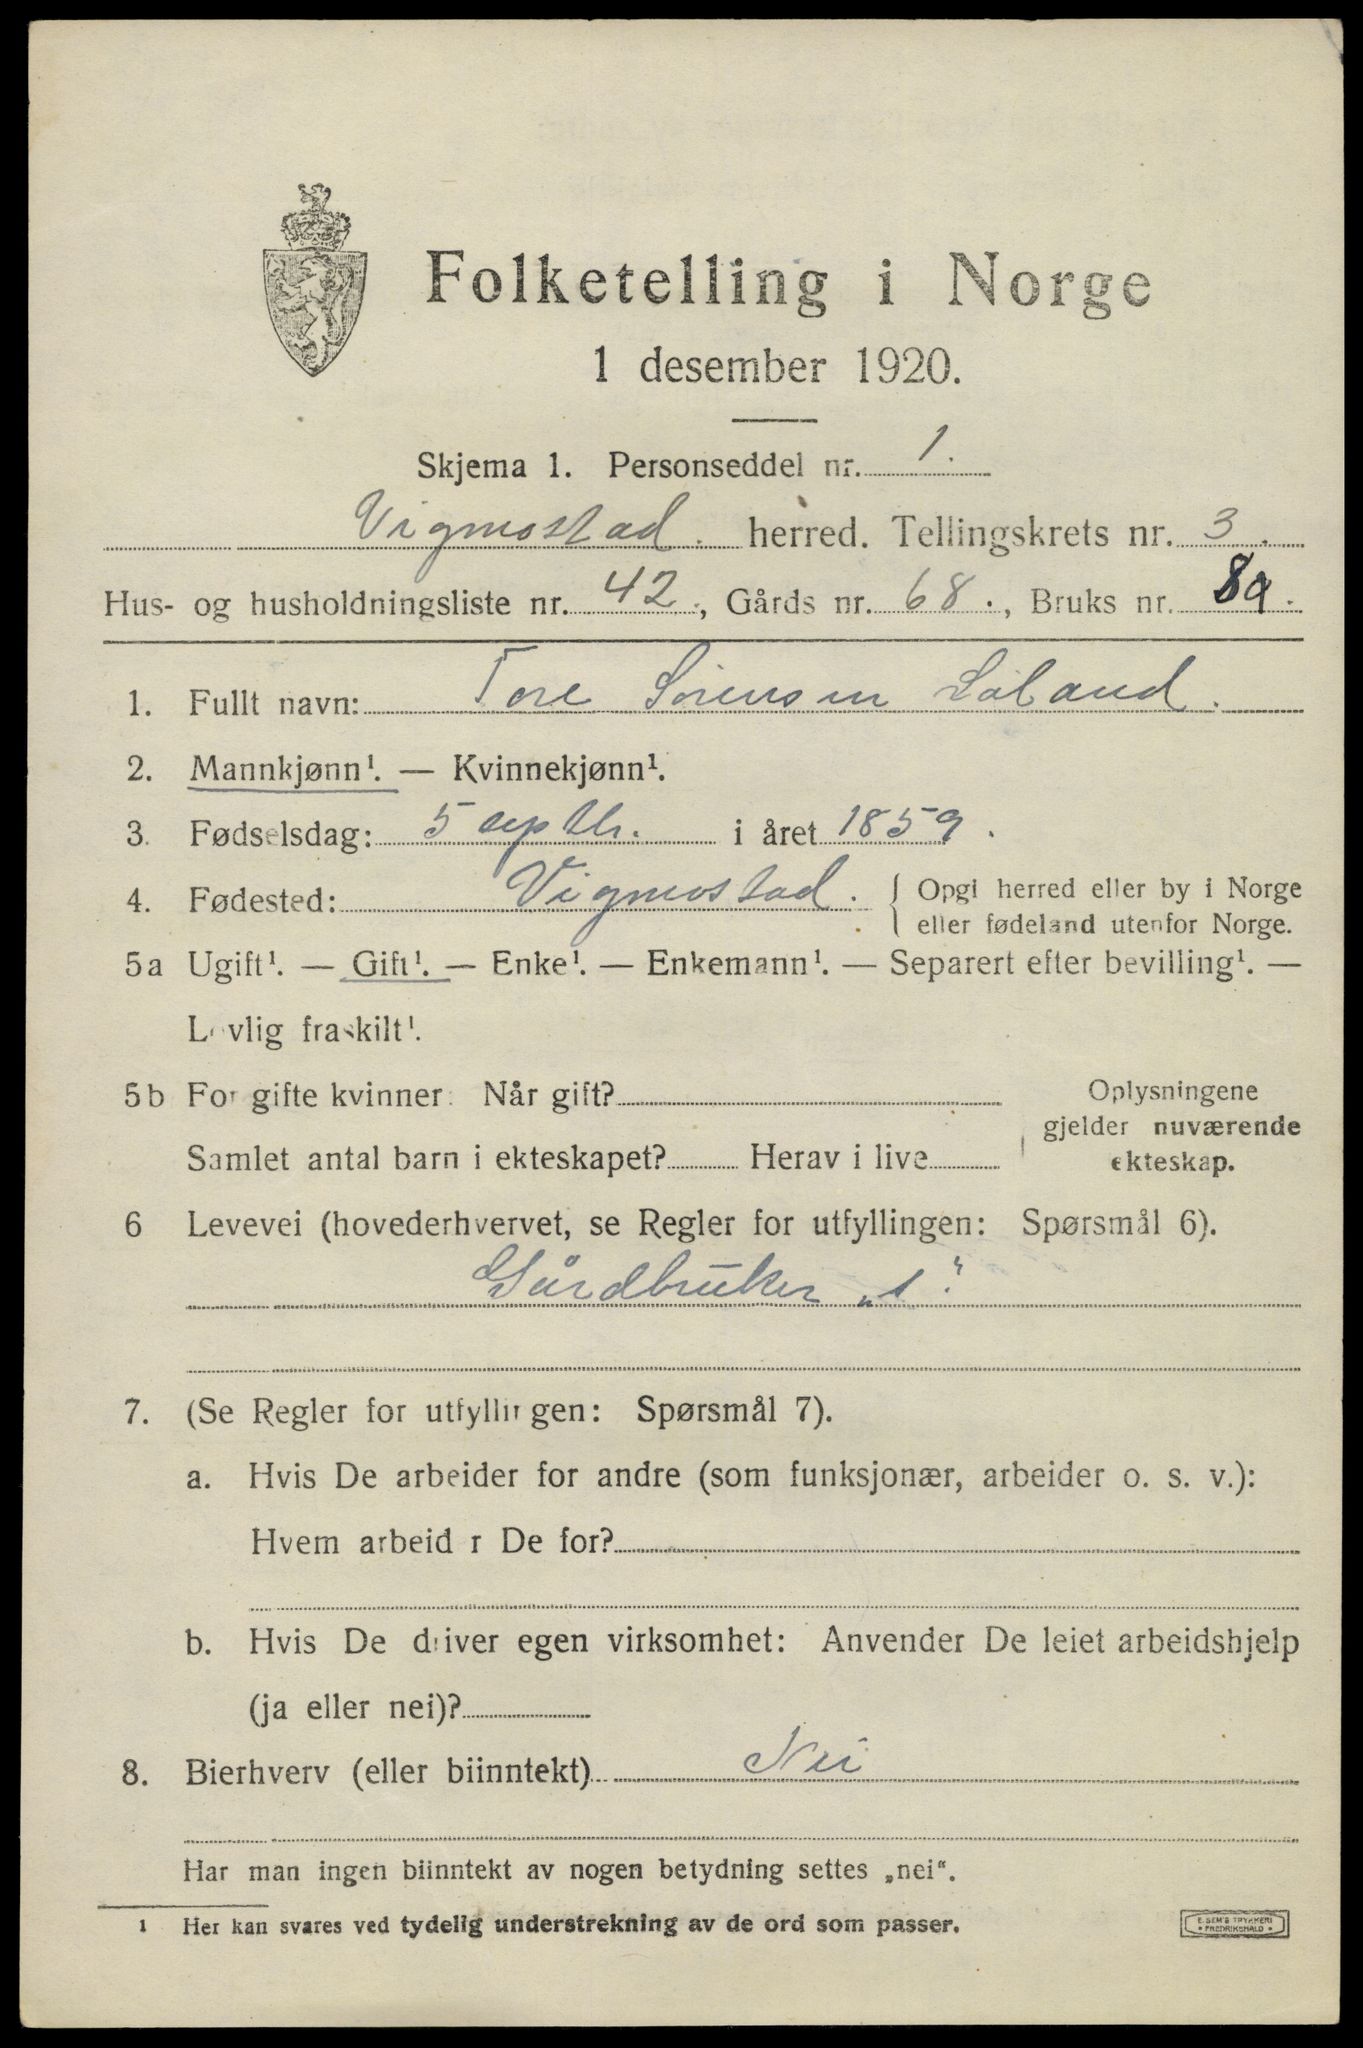 Folketelling i Norge
1 desember 1920.
Skjema 1. Personseddel nr. 1.
Vigmostad. herred. Tellingskrets nr. 3.
Hus- og husholdningsliste nr. 42., Gårds nr. 68., Bruks nr.
1. Fullt navn: Tore Sørensen
2. Mannkjønn¹. — Kvinnekjønn¹.
3. Fødselsdag: 5 septbr. i året 1859.
4. Fødested: Vigmostad. { Opgi herred eller by i Norge
eller fødeland utenfor Norge.
5a Ugift¹. — Gift¹. — Enke¹. — Enkemann¹. — Separert efter bevilling¹. —
Lovlig fraskilt¹.
5b For gifte kvinner: Når gift?
Samlet antal barn i ekteskapet? Herav i live
Oplysningene
gjelder nuværende
ekteskap.
6 Levevei (hovederhvervet, se Regler for utfyllingen: Spørsmål 6).
Gårdbruker „s“.
7. (Se Regler for utfyllingen: Spørsmål 7).
a. Hvis De arbeider for andre (som funksjonær, arbeider o. s. v.):
Hvem arbeid r De for?
b. Hvis De driver egen virksomhet: Anvender De leiet arbeidshjelp
(ja eller nei)?
8. Bierhverv (eller biinntekt) Nei
Har man ingen biinntekt av nogen betydning settes „nei“.
1 Her kan svares ved tydelig understrekning av de ord som passer.
E. SEM'S TRYKKERI
• FREDRIKSHALD •